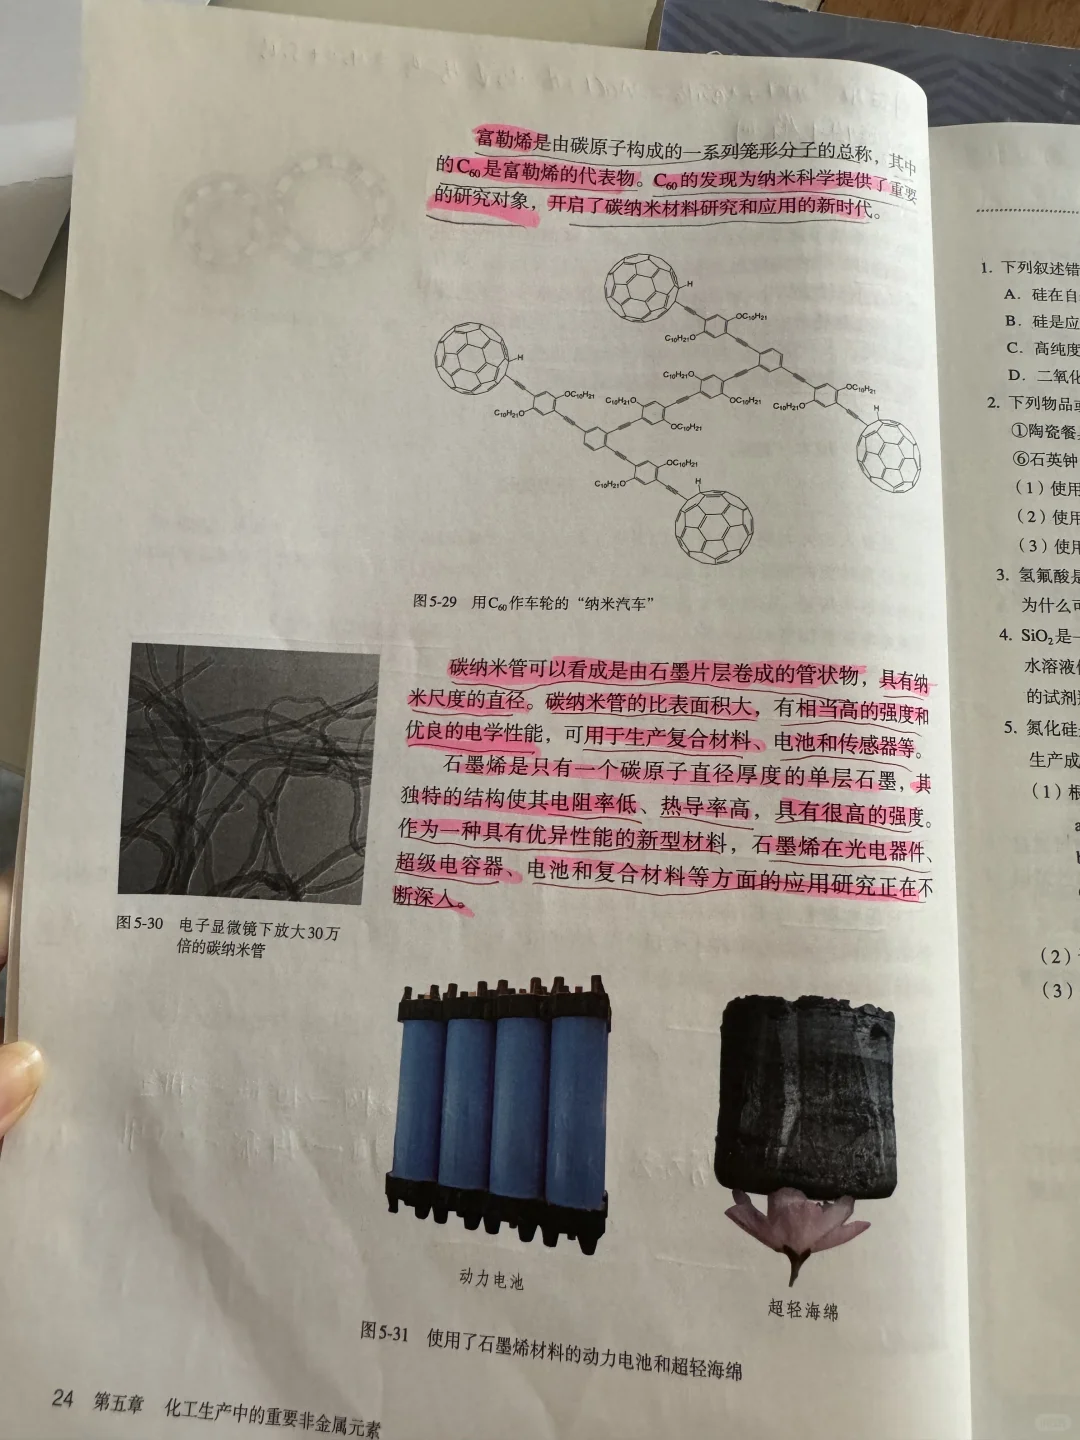 富勒烯是由碳原子构成的一系列笼形分子的总称，其中
的C₆₀是富勒烯的代表物。C₆₀的发现为纳米科学提供了重要
的研究对象，开启了碳纳米材料研究和应用的新时代。
H
OC₁₀H₂₁
C₁₀H₂₁O
H
OC₁₀H₂₁
C₁₀H₂₁O
C₁₀H₂₁O
OC₁₀H₂₁
C₁₀H₂₁O
OC₁₀H₂₁
OC₁₀H₂₁
C₁₀H₂₁O
H
OC₁₀H₂₁
C₁₀H₂₁O
H
图5-29 用C₆₀作车轮的“纳米汽车”
碳纳米管可以看成是由石墨片层卷成的管状物，具有纳
米尺度的直径。碳纳米管的比表面积大，有相当高的强度和
优良的电学性能，可用于生产复合材料、电池和传感器等。
石墨烯是只有一个碳原子直径厚度的单层石墨，其
独特的结构使其电阻率低、热导率高，具有很高的强度。
作为一种具有优异性能的新型材料，石墨烯在光电器件、
超级电容器、电池和复合材料等方面的应用研究正在不
断深入。
图5-30 电子显微镜下放大30万
倍的碳纳米管
动力电池
超轻海绵
图5-31 使用了石墨烯材料的动力电池和超轻海绵
24 第五章 化工生产中的重要非金属元素
1. 下列叙述错
A. 硅在自
B. 硅是应
C. 高纯度
D. 二氧化
2. 下列物品或
①陶瓷餐
⑥石英钟
（1）使用
（2）使用
（3）使用
3. 氢氟酸是
为什么可
4. SiO₂是一
水溶液
的试剂
5. 氮化硅
生产成
（1）根
（2）
（3）